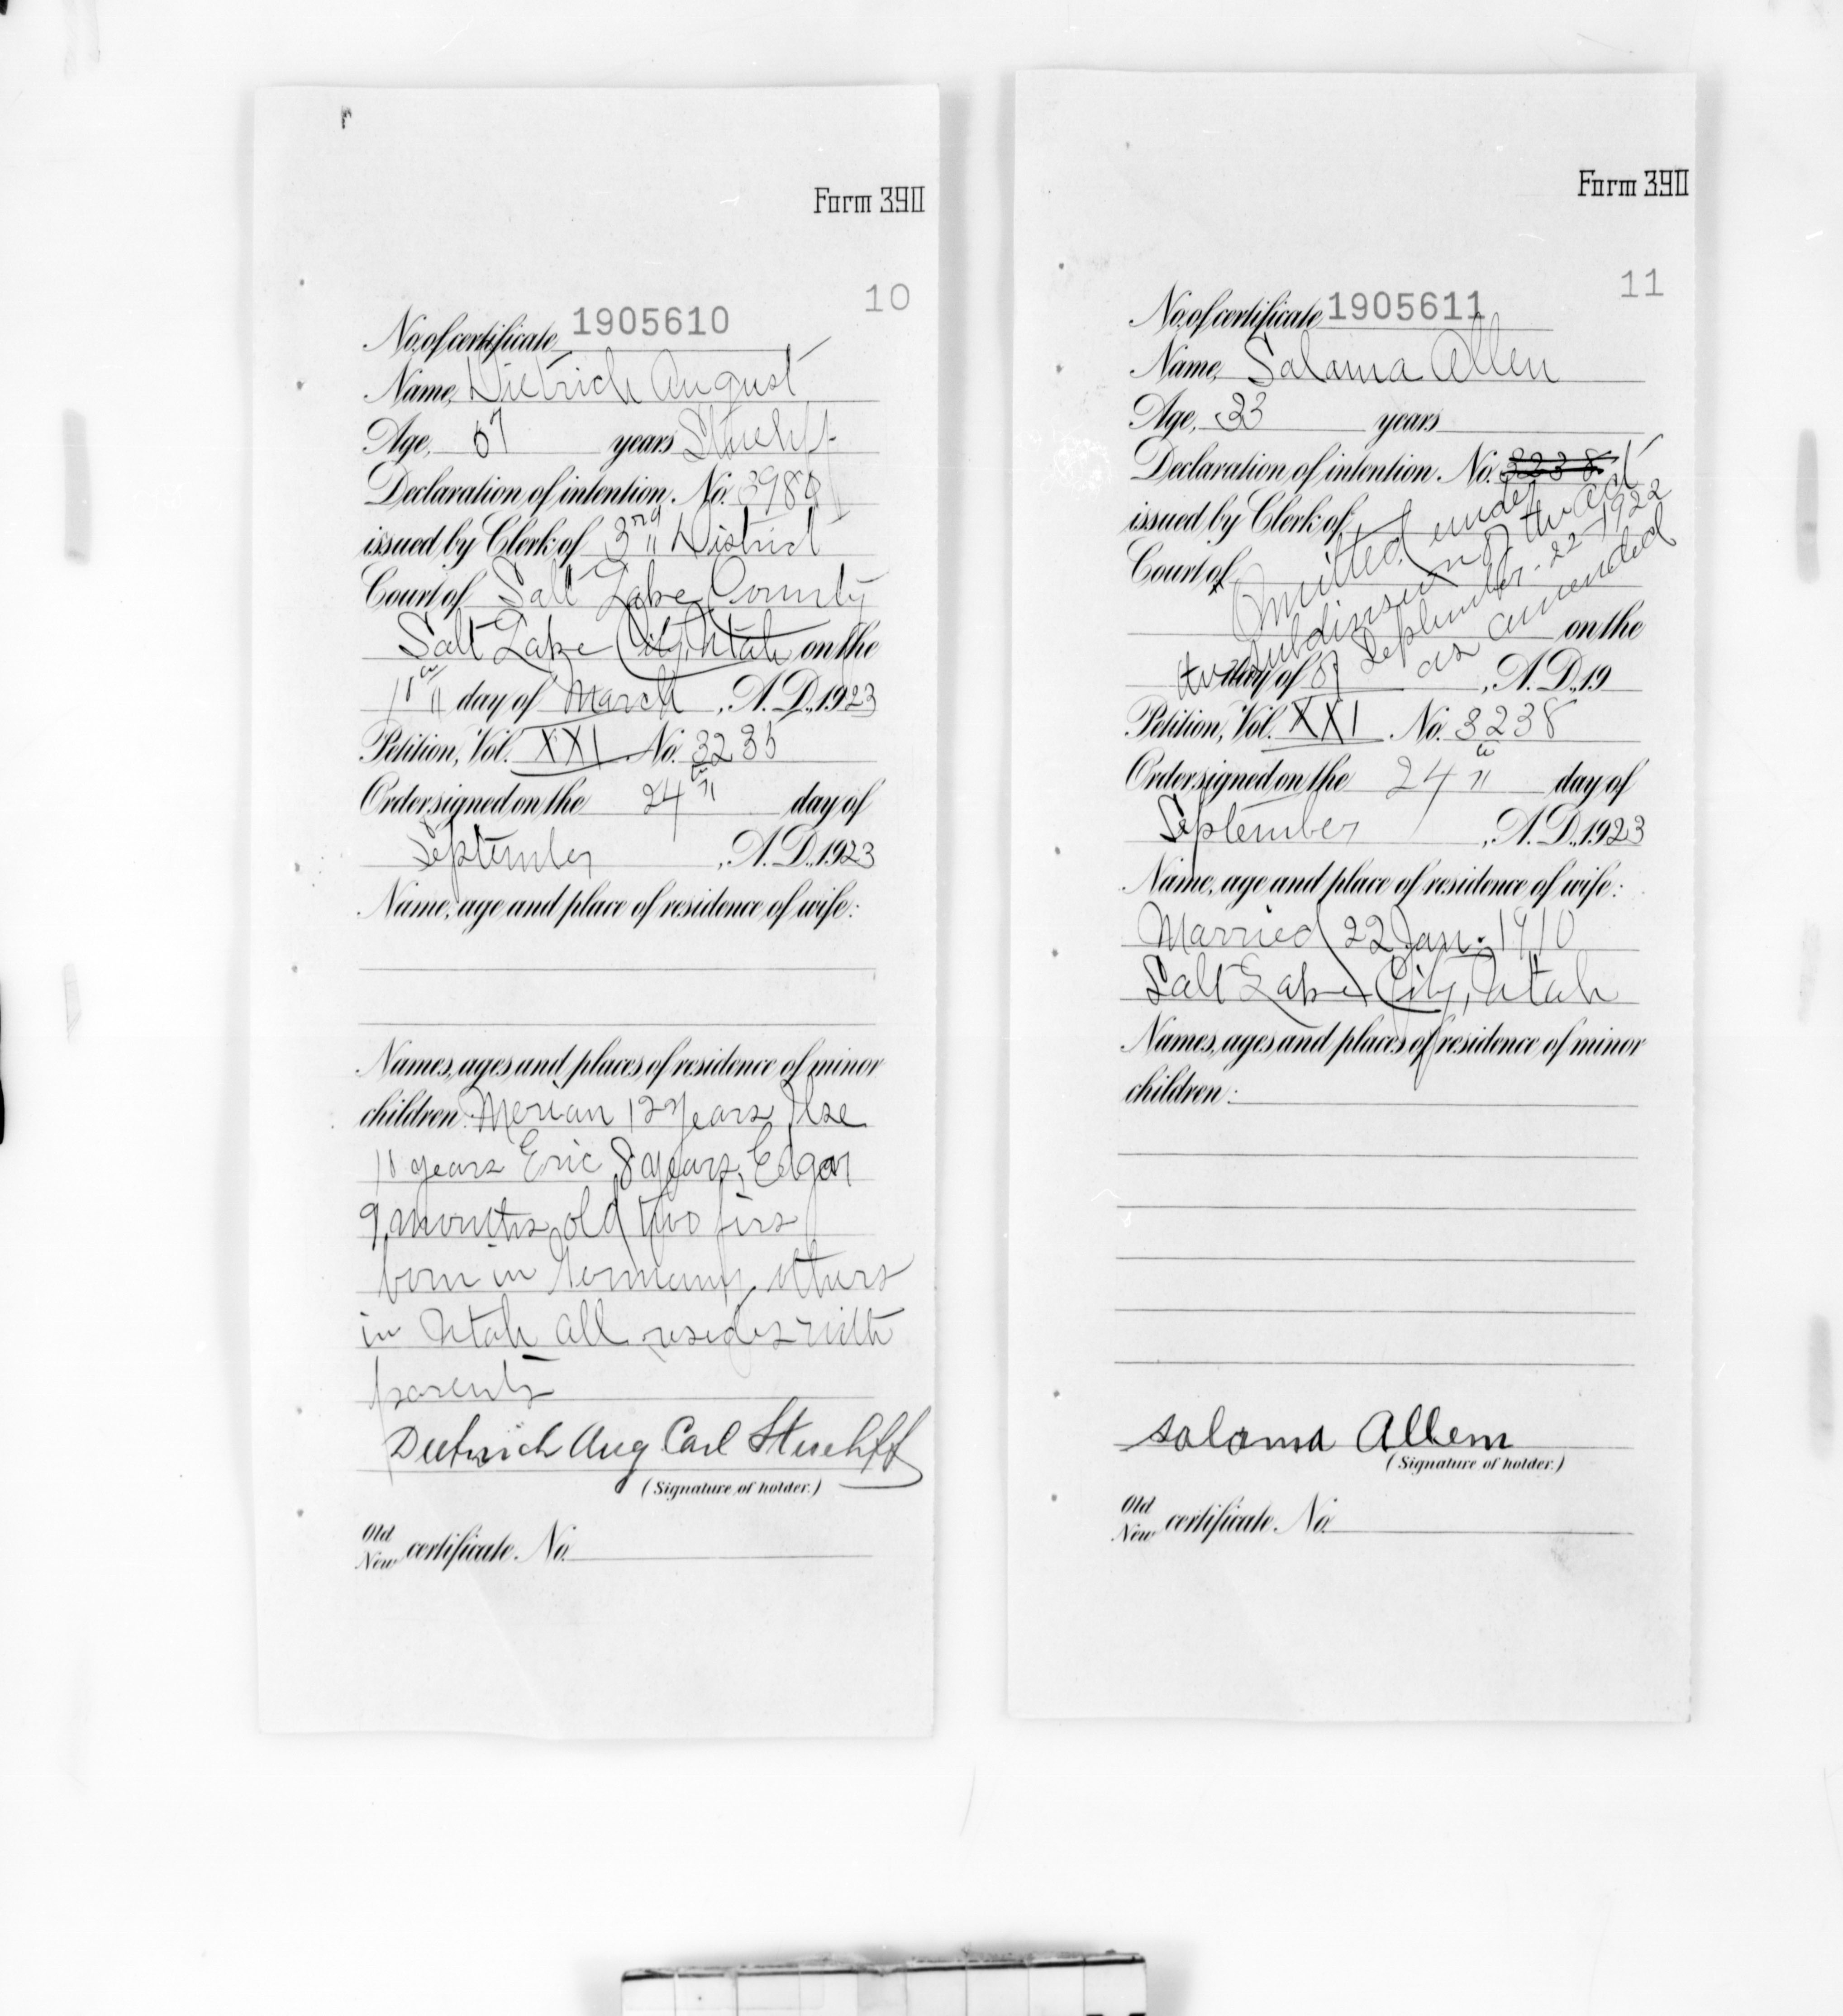 Form 390
10
No. of certificate 1905610
Name, Dietrich August
Age, years
Declaration of intention. No.
issued by Clerk of 3rd District
Court of Salt Lake County
Salt Lake City, Utah on the
day of March, A.D., 1923
Petition, Vol. XXI No. 3235
Order signed on the 24th day of
September, A.D., 1923
Name, age and place of residence of wife:
Names, ages and places of residence of minor
children: 12 years, Ilse
years Eric 8 years, Edgar
9 months old two firs
born in Germany, others
in Utah all resides with
parents
Dietrich Aug Carl
(Signature of holder.)
Old
New certificate. No.
Form 390
11
No. of certificate 1905611
Name, Saloma Allen
Age, 33 years
Declaration of intention. No. 3238
issued by Clerk of
Court of
on the
day of , A.D., 19
Omitted under
subdivision of the act
of September - 22 - 1922
as amended
Petition, Vol. XXI No. 3238
Order signed on the 24th day of
September, A.D., 1923
Name, age and place of residence of wife:
Married 22 Jan. 1910
Salt Lake City, Utah
Names, ages and places of residence of minor
children:
saloma Allem
(Signature of holder.)
Old
New certificate. No.